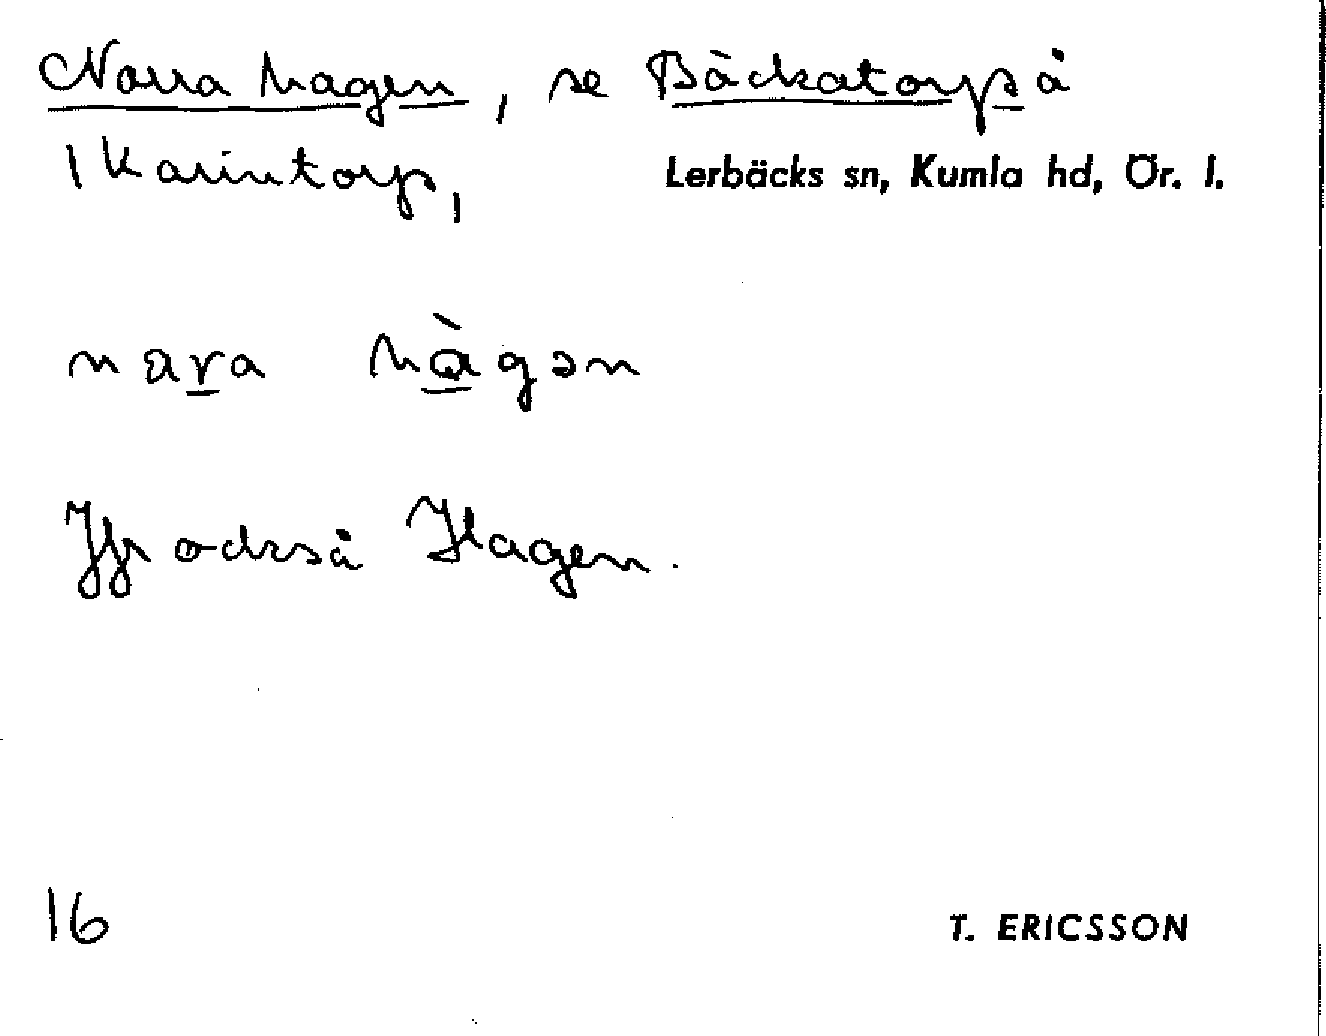 Norra hagen, se Bäckatorpså
1 Karintorp, Lerbäcks sn, Kumla hd, Ör. l.
nara hàgən
Jfr också Hagen.
16 T. ERICSSON